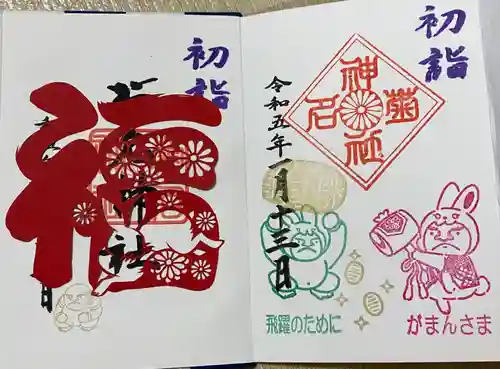 初詣
福
初詣
菊名神社
令和五年一月十三日
飛躍のために
がまんさま